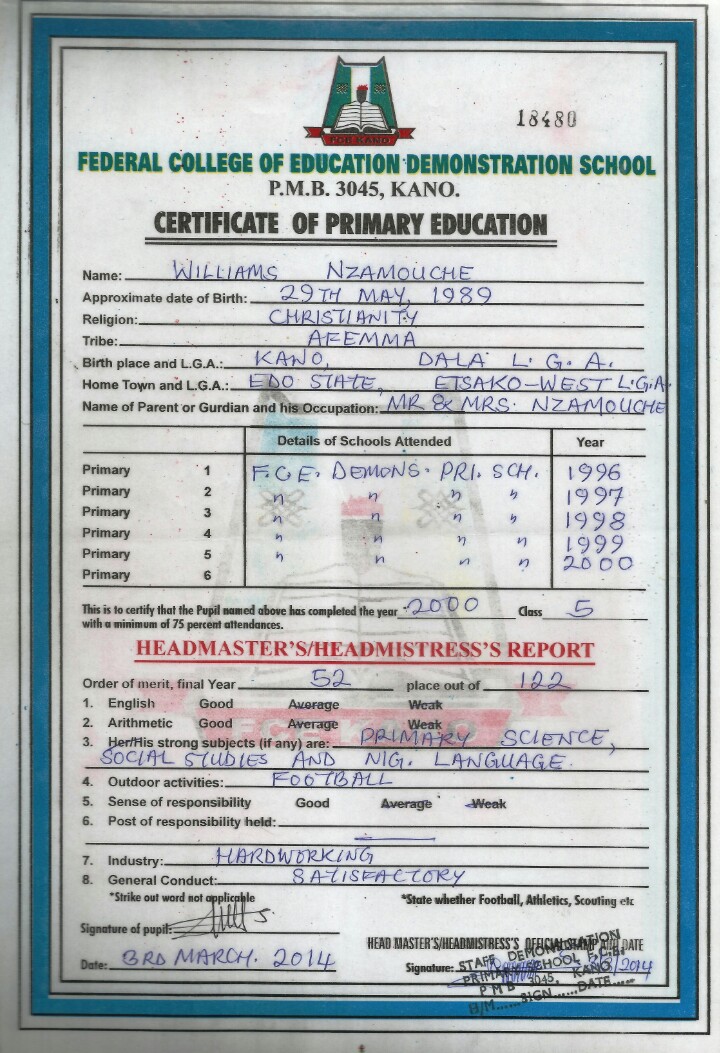 18480
FCE KANO
FEDERAL COLLEGE OF EDUCATION DEMONSTRATION SCHOOL
P.M.B. 3045, KANO.
CERTIFICATE OF PRIMARY EDUCATION
Name: WILLIAMS NZAMOUCHE
Approximate date of Birth: 29TH MAY, 1989
Religion: CHRISTIANITY
Tribe: AFEMMA
Birth place and L.G.A.: KANO, DALA L.G.A.
Home Town and L.G.A.: EDO STATE, ETSAKO-WEST L.G.A
Name of Parent or Gurdian and his Occupation: MR & MRS. NZAMOUCHE
Details of Schools Attended Year
Primary 1 F.C.E. DEMONS. PRI. SCH. 1996
Primary 2 " " " " 1997
Primary 3 " " " " 1998
Primary 4 " " " " 1999
Primary 5 " " " " 2000
Primary 6
This is to certify that the Pupil named above has completed the year 2000 Class 5
with a minimum of 75 percent attendances.
HEADMASTER'S/HEADMISTRESS'S REPORT
Order of merit, final Year 52 place out of 122
1. English Good Average Weak
2. Arithmetic Good Average Weak
3. Her/His strong subjects (if any) are: PRIMARY SCIENCE,
SOCIAL STUDIES AND NIG. LANGUAGE.
4. Outdoor activities: FOOTBALL
5. Sense of responsibility Good Average Weak
6. Post of responsibility held:
7. Industry: HARDWORKING
8. General Conduct: SATISFACTORY
*Strike out word not applicable *State whether Football, Athletics, Scouting etc
Signature of pupil:
HEAD MASTER'S/HEADMISTRESS'S OFFICIAL STAMP AND DATE
Date: 3RD MARCH. 2014 Signature:
STAFF DEMONSTRATION
PRIMARY SCHOOL F.C.E.
P M B 3045, KANO
H/M......SIGN......DATE......
FCE KANO